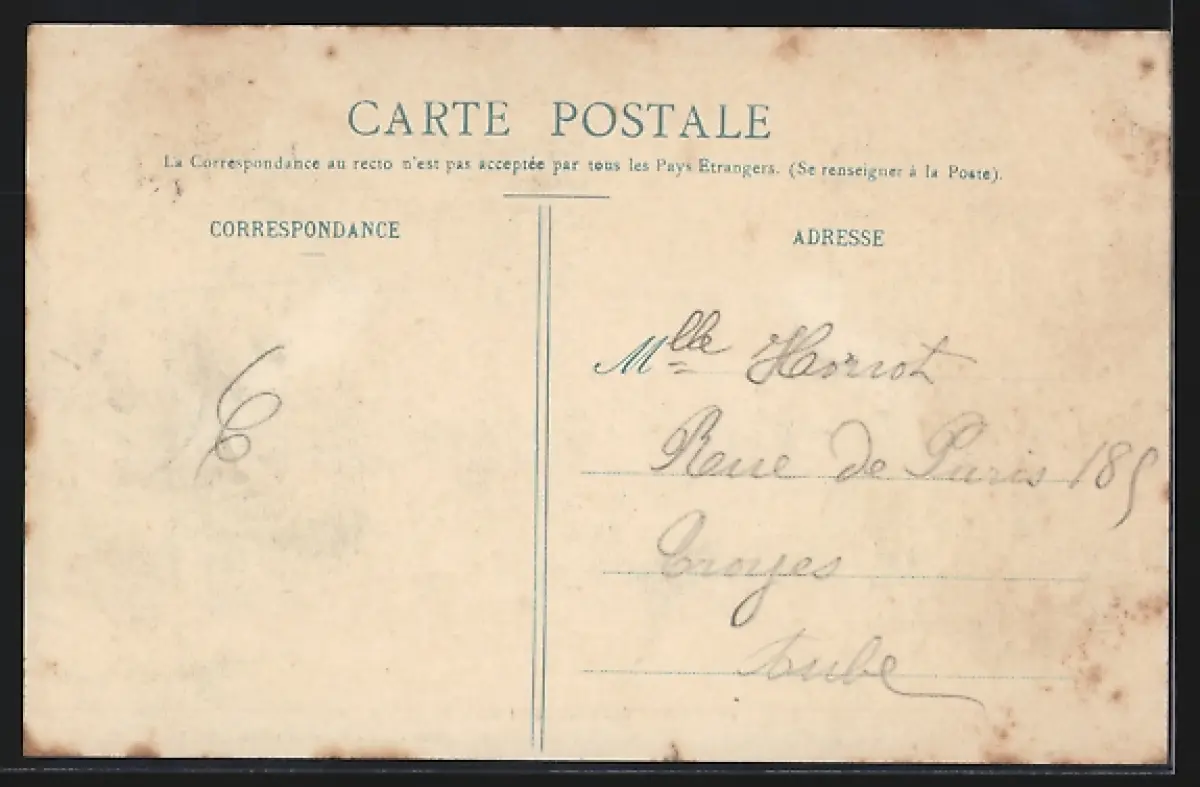 CARTE POSTALE
La Correspondance au recto n'est pas acceptée par tous les Pays Etrangers. (Se renseigner à la Poste).
CORRESPONDANCE
ADRESSE
Mlle Horiot
Rue de Paris 185
Troyes
Aube